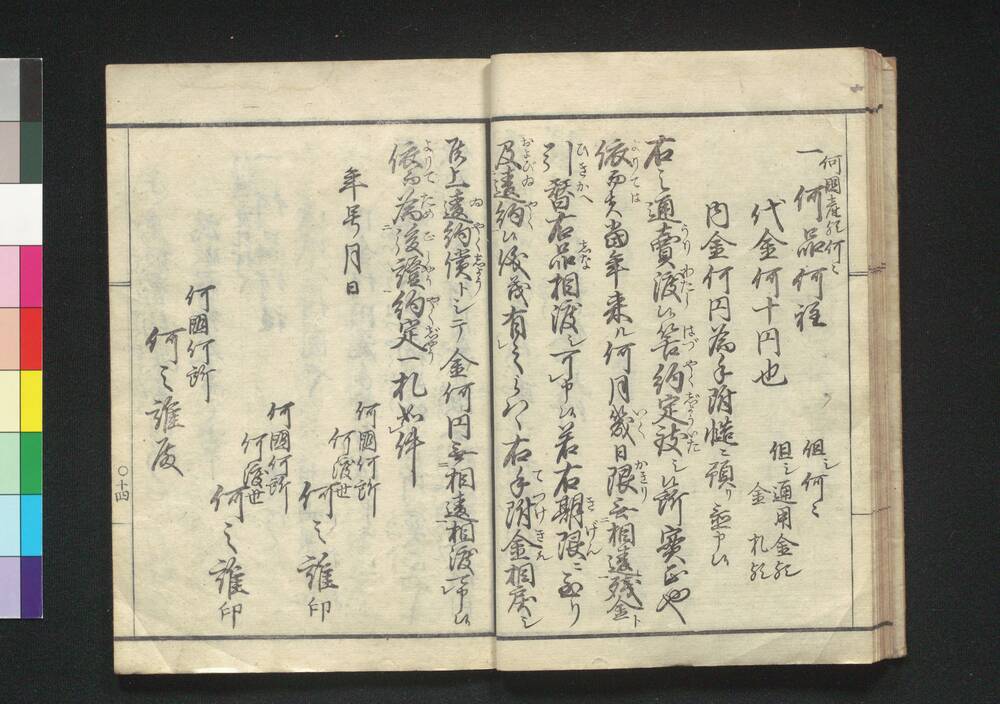 何國産歟何之
一何品何程
但之何々
代金何十円也
但之通用金歟
金札歟
内金何円為手附慥ニ預り申候
右之通賣渡候筈約定致シ候所実正也
依而者当年来ル何月幾日限無相違残金ト
引替右品相渡シ可申候若右期限ニ至り
及違約候儀有之候ハヽ右手附金相戻シ
其上違約償トシテ金何円無相違相渡可申候
依而為後證約定一札如件
年号月日
何國何所
何渡世
何之誰印
何國何所
何渡世
何之誰印
何國何所
何之誰殿
〇十四